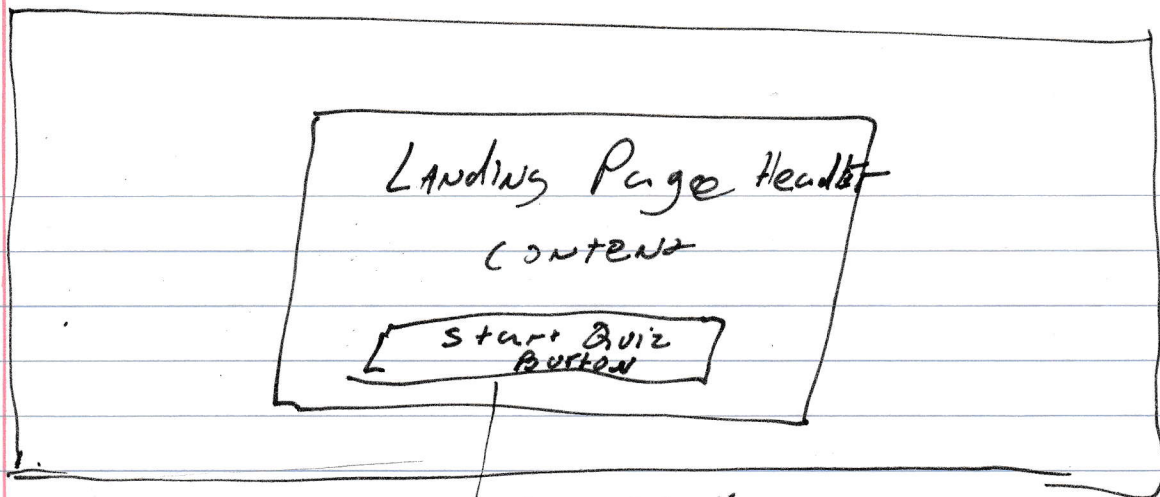 Landing Page Header
Content
Start Quiz
Button